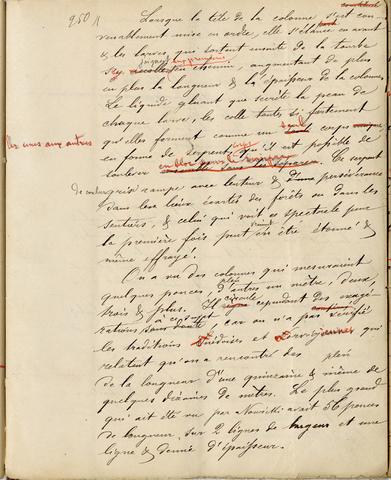 950
Lorsque la tête de la colonne s'est con-
venablement mise en ordre, elle s'élance en avant
& les larves, qui sortent ensuite de la tourbe
s'y en chemin, augmentant de plus
en plus la longueur & l'épaisseur de la colonne.
Le liquide gluant que secrète la peau de
chaque larve, les colle toutes si fortement
les unes aux autres
qu'elles forment comme un seul corps unique
en forme de serpent, qu'il est possible de
soulever en bloc sans le rompre. Ce serpent
grise rampe avec lenteur & persévérance
dans les lieux écartés des forêts ou dans les
sentiers, & celui qui voit ce spectacle pour
la première fois peut en être étonné &
même effrayé.
On a vu des colonnes qui mesuraient
quelques pouces, d'autres un mètre, deux,
trois & plus. Il circule cependant des exagé-
rations sans doute à ce sujet car on n'a pas vérifié
les traditions Suédoises et Norvégiennes qui
relatent qu'on a rencontré des
de la longueur d'une quinzaine & même de
quelques dizaines de mètres. Le plus grand
qui ait été vu par avait 56 pouces
de longueur, sur 2 lignes de largeur et une
ligne & demie d'épaisseur.